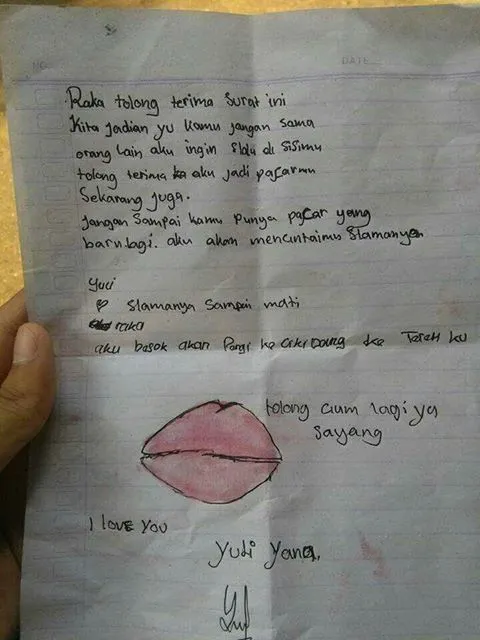 NO.
DATE
Raka tolong terima surat ini
Kita Jadian yu kamu jangan sama
orang lain aku ingin Slalu di sisimu
tolong terima aku jadi pacarmu
Sekarang juga.
jangan Sampai kamu punya pacar yang
baru lagi. aku akan mencintaimu Slamanya
Yuli
♡ Slamanya Sampai mati
raka
aku besok akan Pergi ke
tolong cium lagi ya
Sayang
I love You
Yuli Yana.